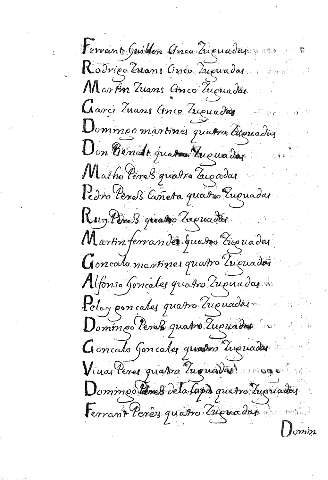 Ferrant Guillen Cinco Zuguadas
Rodrigo Zuans Cinco Zuguadas
Martin Zuans Cinco Zuguadas
Garci Zuans Cinco Zuguadas
Domingo martines quatro Zuguadas
Don Beneit quatro Zuguadas
Matho Peres quatro Zugadas
Pedro Peres Cañeta quatro Zuguadas
Ruy Peres quatro Zuguadas
Martin ferrandes quatro Zuguadas
Goncalo martines quatro Zuguadas
Alfonso Goncales quatro Zuguadas
Pelay goncales quatro Zuguadas
Domingo Peres quatro Zuguadas
Goncalo Goncales quatro Zuguadas
Viuas Peres quatro Zuguadas
Domingo Peres de la Capa quatro Zuguadas
Ferrant Peres quatro Zuguadas
Domin